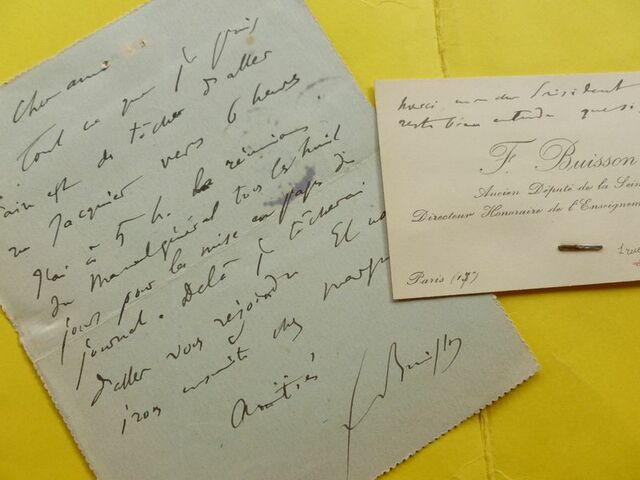 Cher ami
Tout ce que je puis
faire est de tâcher d'aller
rue Jacquier vers 6 heures
J'ai à 5 h. la réunion
du Manuel général tous les huit
jours pour la mise en pages du
journal. De là je tâcherai
d'aller vous rejoindre Et
irons ensuite chez
Amitiés
F Buisson
merci, mon cher Président
reste bien entendu
F. Buisson
Ancien Député de la Sein
Directeur Honoraire de l'Enseignem
Paris (17)